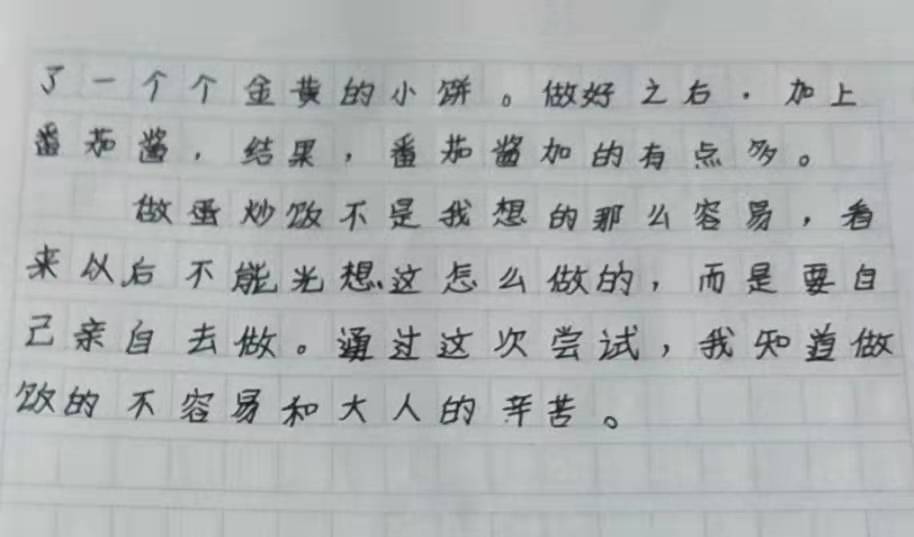 了一个个金黄的小饼。做好之后．加上
番茄酱，结果，番茄酱加的有点多。
做蛋炒饭不是我想的那么容易，看
来以后不能光想这怎么做的，而是要自
己亲自去做。通过这次尝试，我知道做
饭的不容易和大人的辛苦。